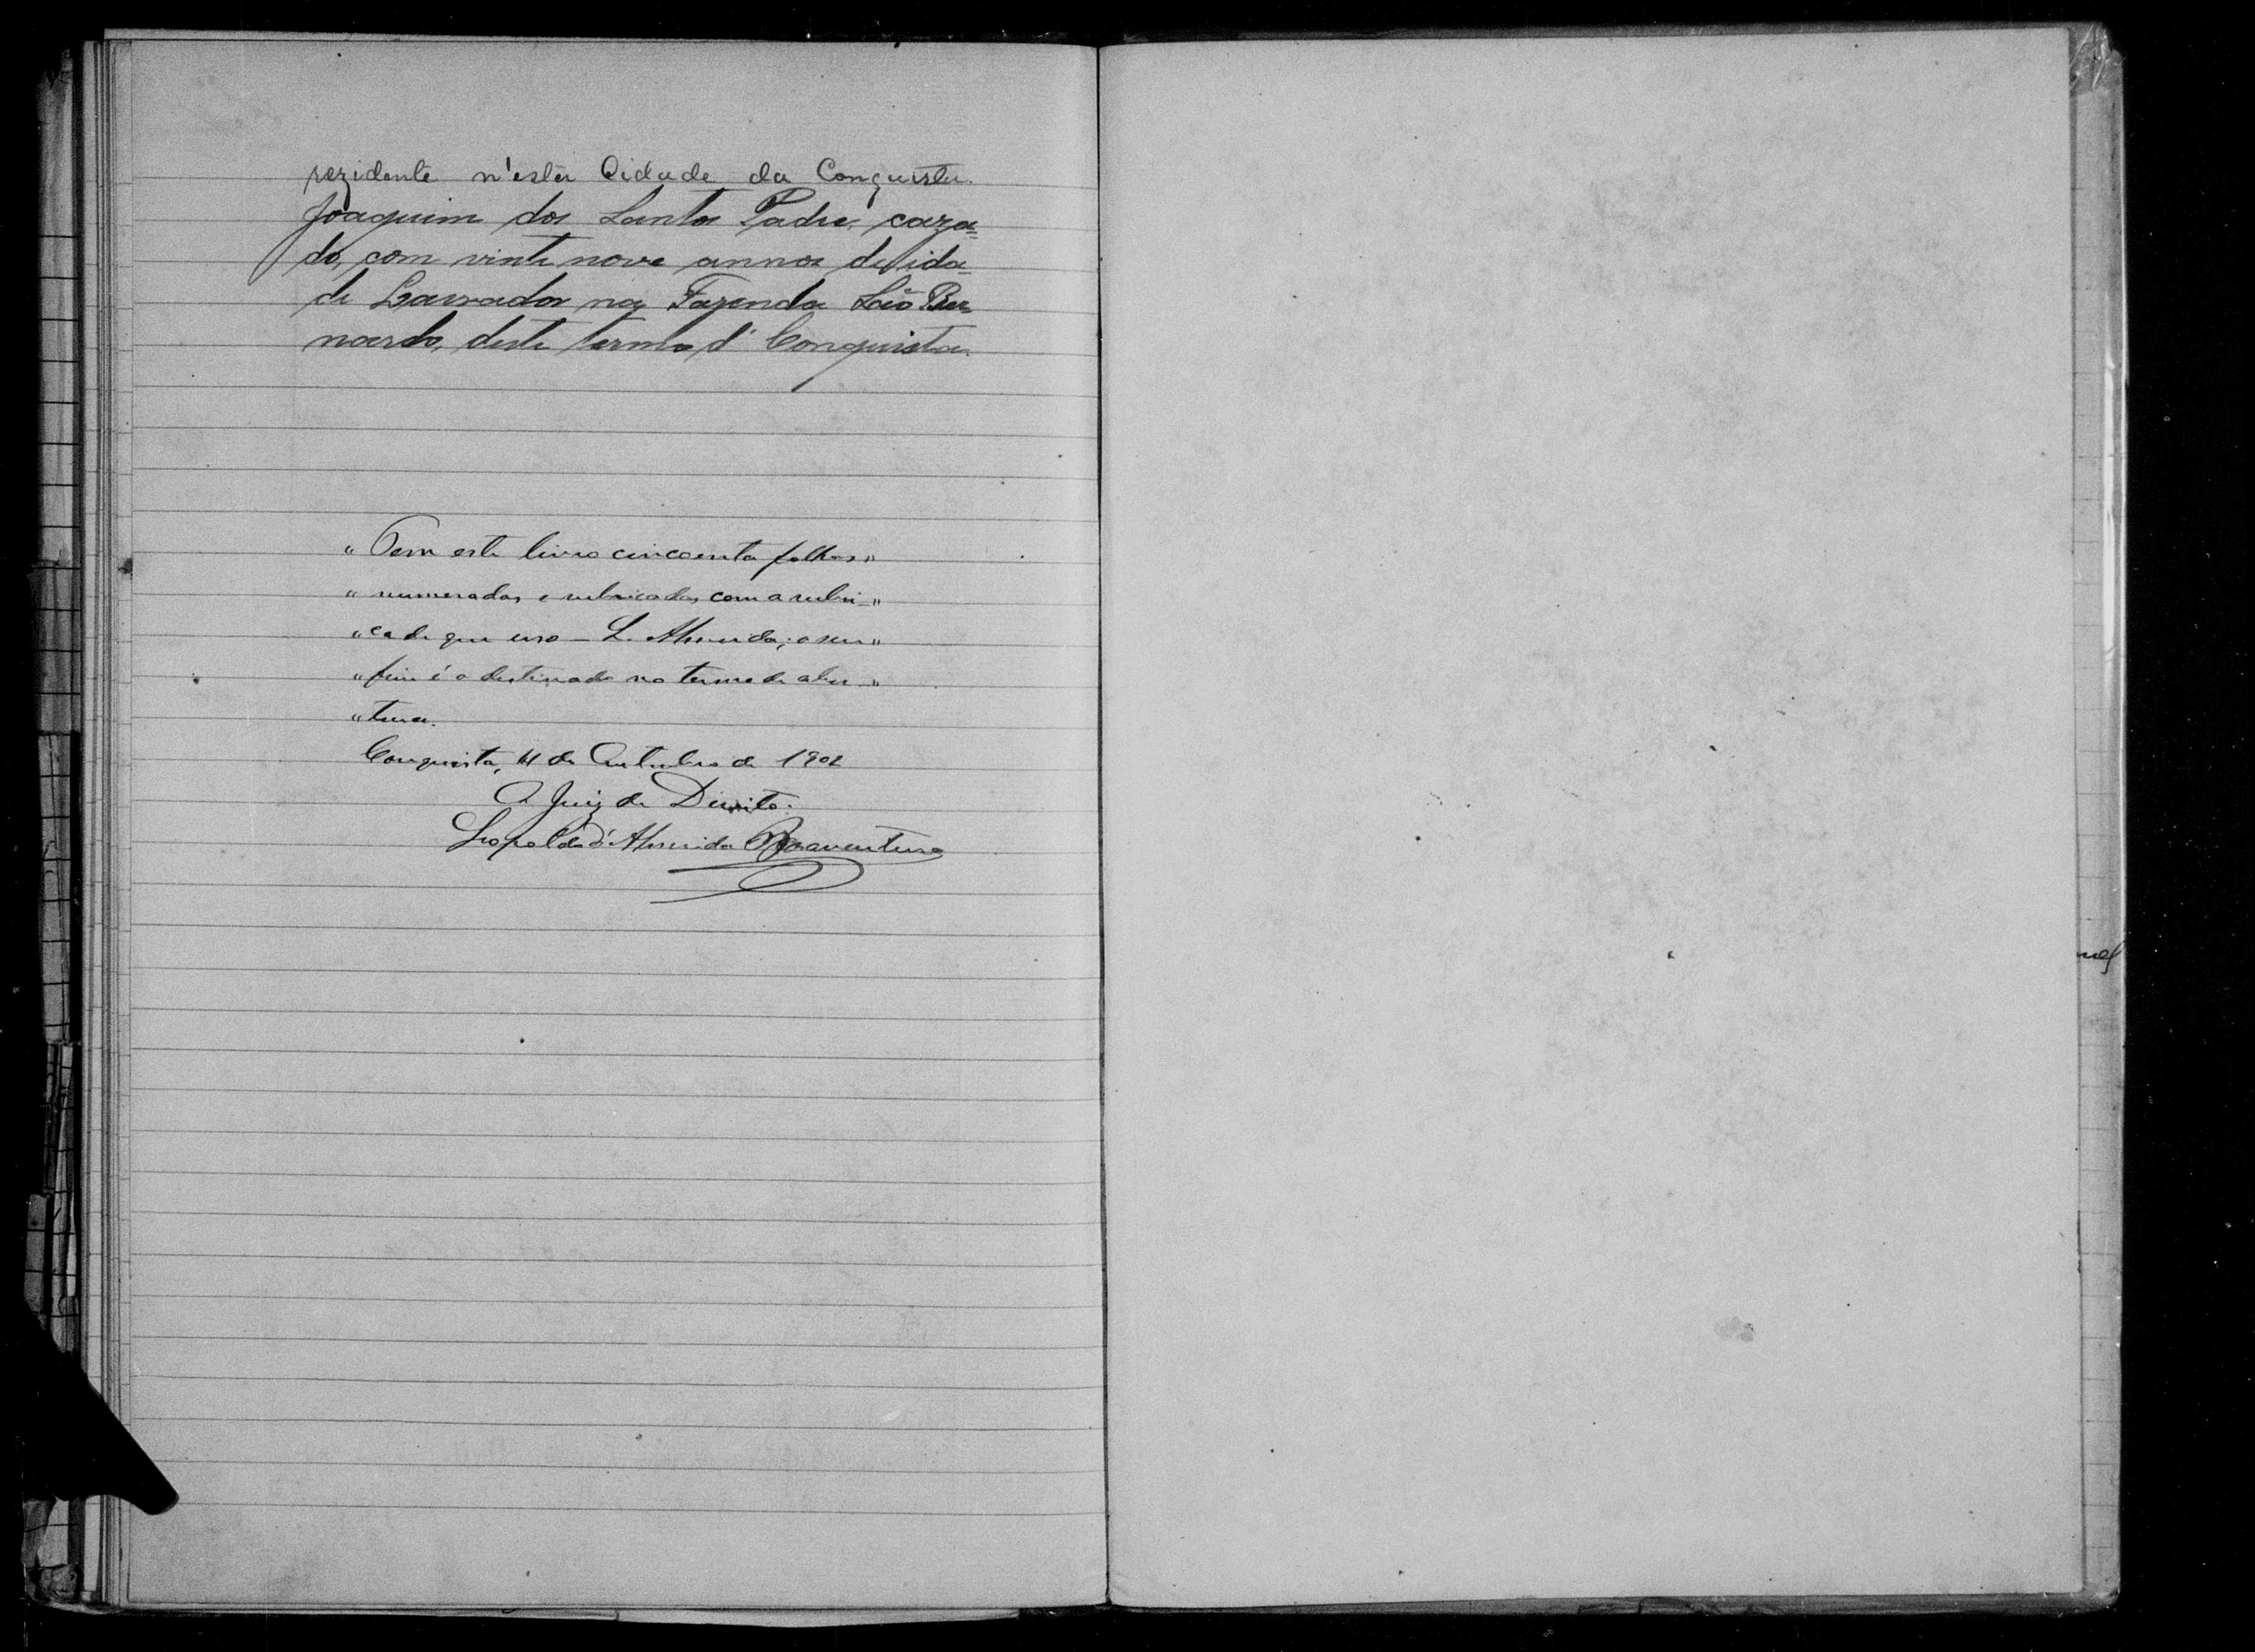 rezidente n'esta Cidade da Conquista.
Joaquim dos Santos Padre, caza=
do, com vinte nove annos de ida=
de Lavrador na Fazenda São Ber
nardo, deste termo d'Conquista.
"Tem este livro cincoenta folhas"
"numeradas e rubricadas com a rubri-"
"ca de que uso – L. Almeida; o seu"
"fim é o destinado no termo de aber-"
"tura.
Conquista, de Outubro de 1902
O Juiz de Direito.
Leopoldo d'Almeida Boaventura